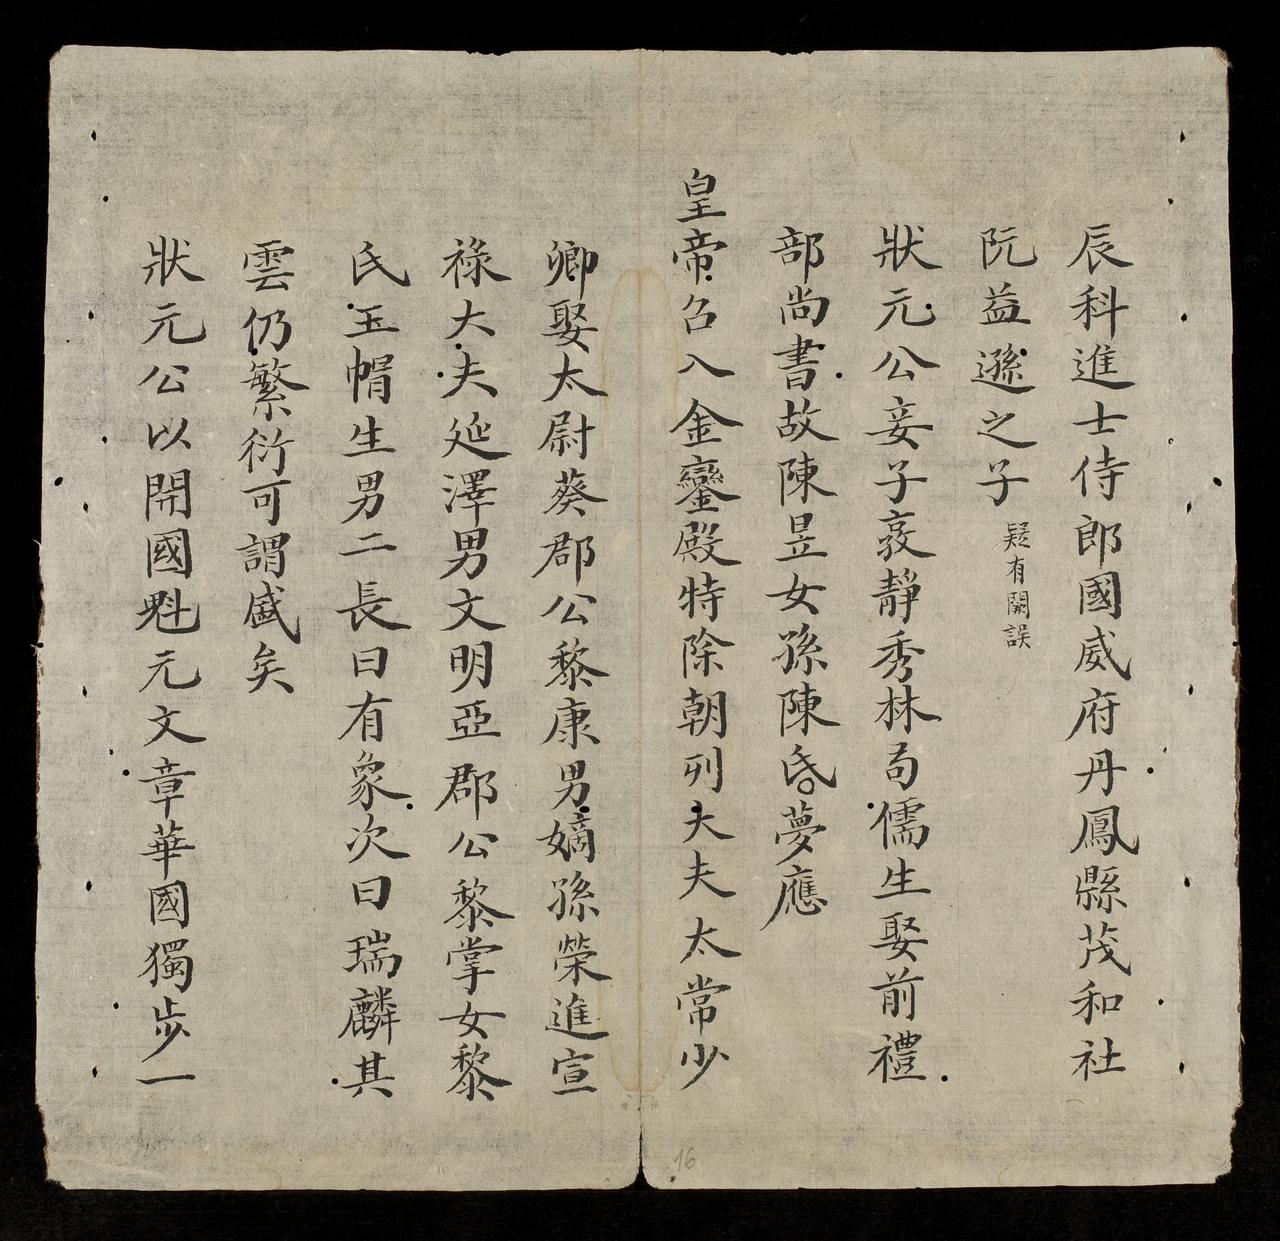 辰科進士侍郎國威府丹鳳縣茂和社
阮益遜之子 疑有闕誤
狀元公妾子𢽾靜秀林局儒生娶前禮
部尚書故陳昱女孫陳氏夢應
皇帝召入金鑾殿特除朝列大夫太常少
卿娶太尉葵郡公黎康男嫡孫榮進宣
祿大夫延澤男文明亞郡公黎掌女黎
氏玉帽生男二長曰有象次曰瑞麟其
雲仍繁衍可謂盛矣
狀元公以開國魁元文章華國獨步一
16